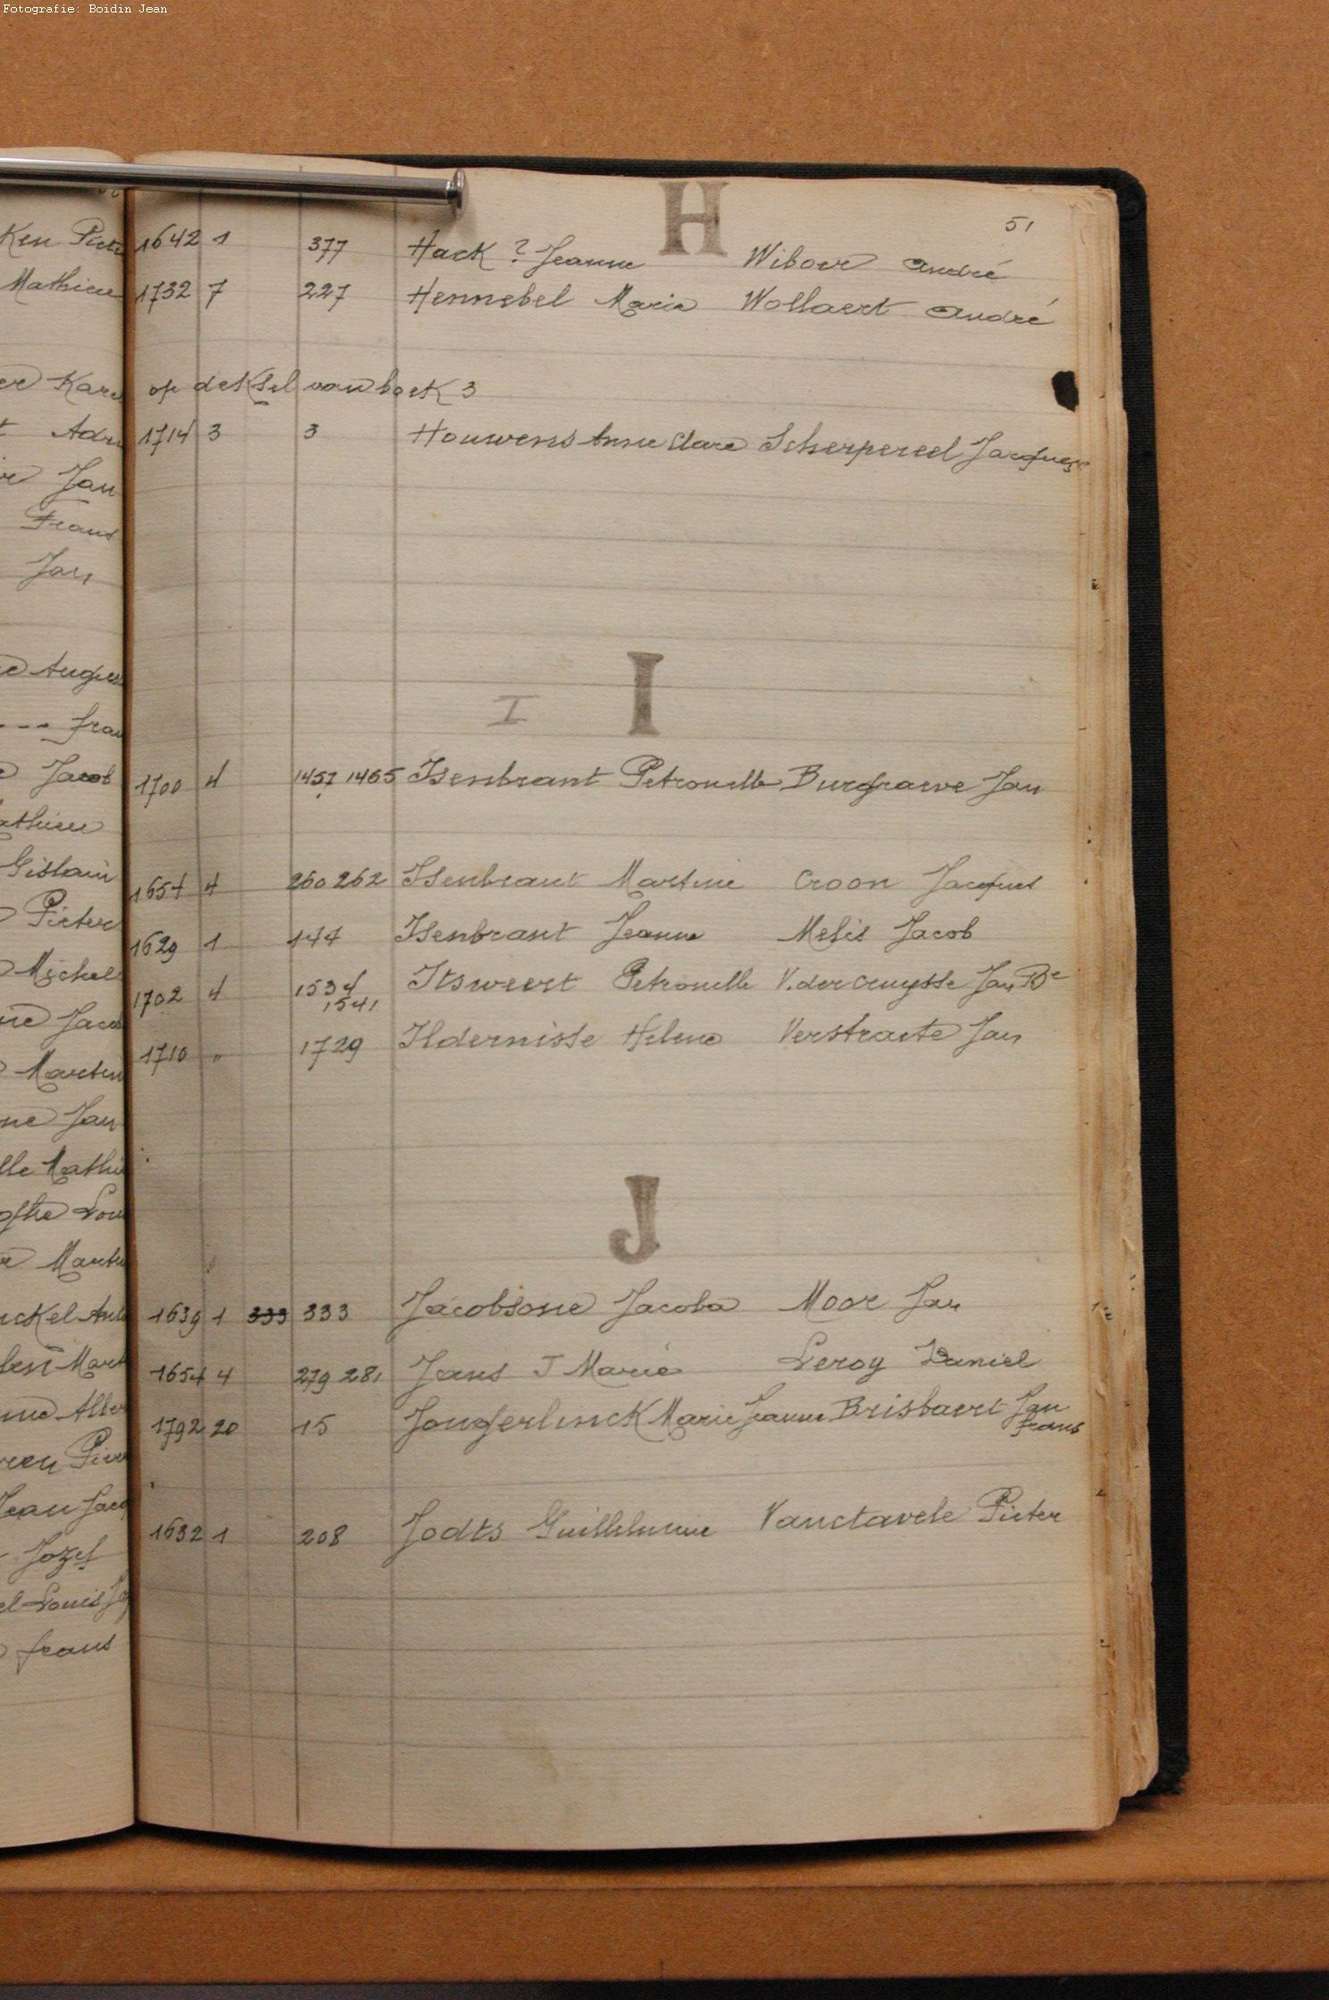 Fotografie: Boidin Jean
H
51
1642 1 377 Hack ? Jeanne Wiboer André
1732 7 227 Hennebel Marie Wollaert André
op deksel van boek 3
1714 3 3 Houwens Anne Clare Scherpereel Jacques
I
I
1700 4 1457 1465 Isenbrant Petronelle Burgraeve Jan
1654 4 260 262 Isenbrant Martine Croon Jacques
1629 1 144 Isenbrant Jeanne Melis Jacob
1702 4 1534 1541 Itsweert Petronelle V.der Cruysse Jan Bte
1710 " 1729 Ildernisse Helene Verstraete Jan
J
1639 1 333 333 Jacobsone Jacoba Moor Jan
1654 4 279 281 Jans J Marie Leroy Daniel
1792 20 15 Jongerlinck Marie Jeanne Brisbaert Jan Frans
1632 1 208 Jodts Guillelmine Vanctavele Pieter
Ken
Mathieu
Karel
Jan
Frans
Jan
Jacob
Mathieu
Gislain
Pieter
Michel
Martin
Jan
Jozef
Louis
frans